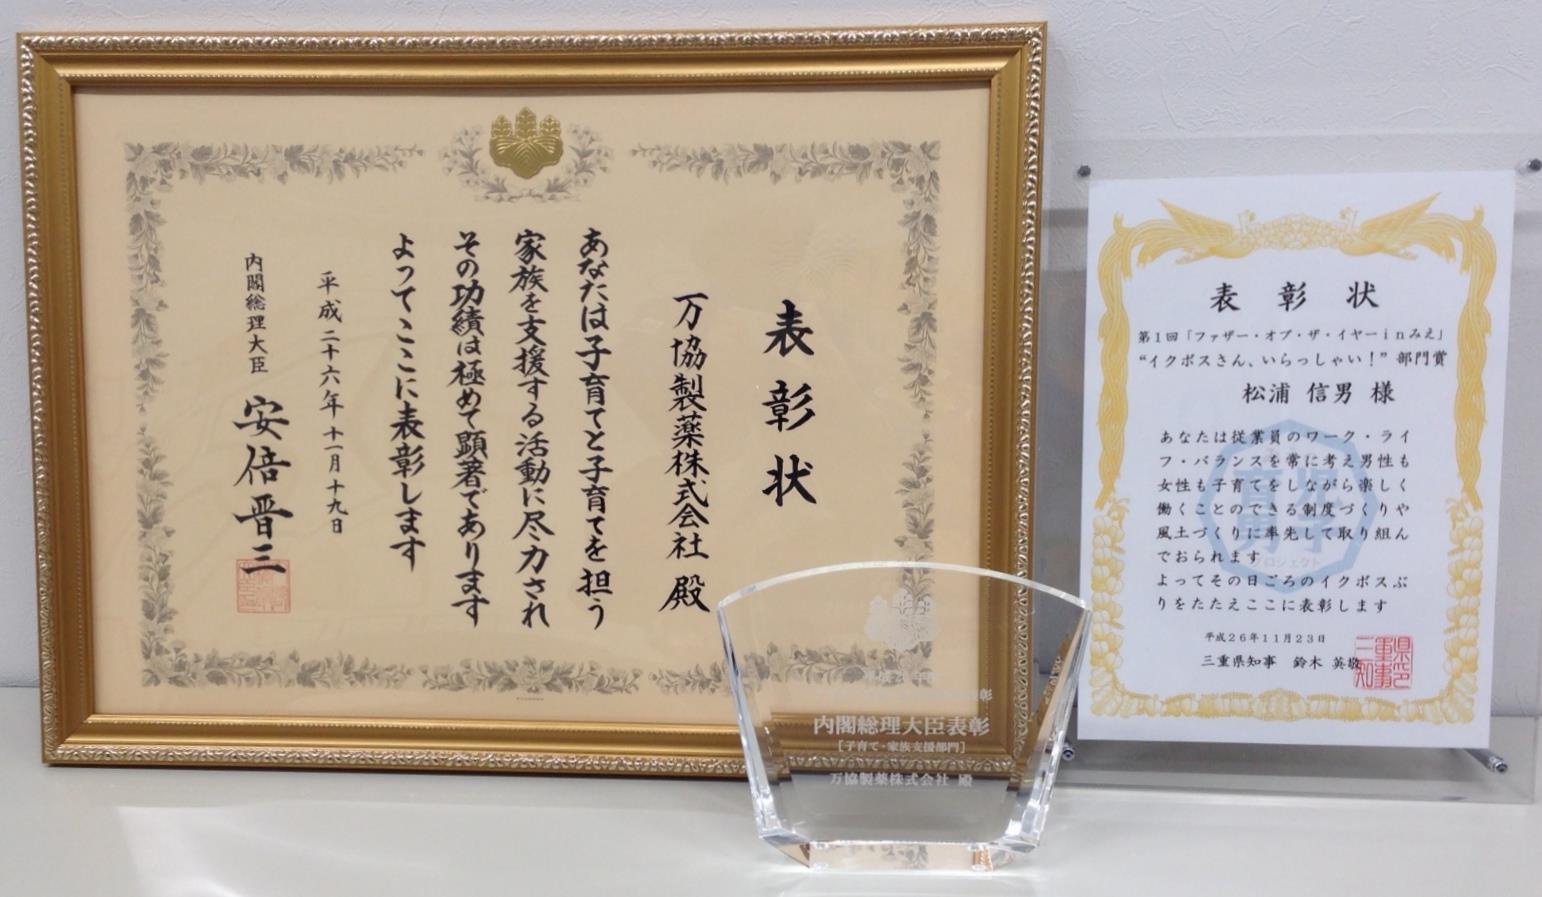 表彰状
万協製薬株式会社 殿
あなたは子育てと子育てを担う
家族を支援する活動に尽力され
その功績は極めて顕著であります
よってここに表彰します
平成二十六年十一月十九日
内閣総理大臣 安倍晋三
内閣総理大臣表彰
[子育て・家族支援部門]
万協製薬株式会社 殿
表彰状
第1回「ファザー・オブ・ザ・イヤーinみえ」
“イクボスさん、いらっしゃい！” 部門賞
松浦 信男 様
あなたは従業員のワーク・ライ
フ・バランスを常に考え男性も
女性も子育てをしながら楽しく
働くことのできる制度づくりや
風土づくりに率先して取り組ん
でおられます
よってその日ごろのイクボスぶ
りをたたえここに表彰します
プロジェクト
平成26年11月23日
三重県知事 鈴木 英敬